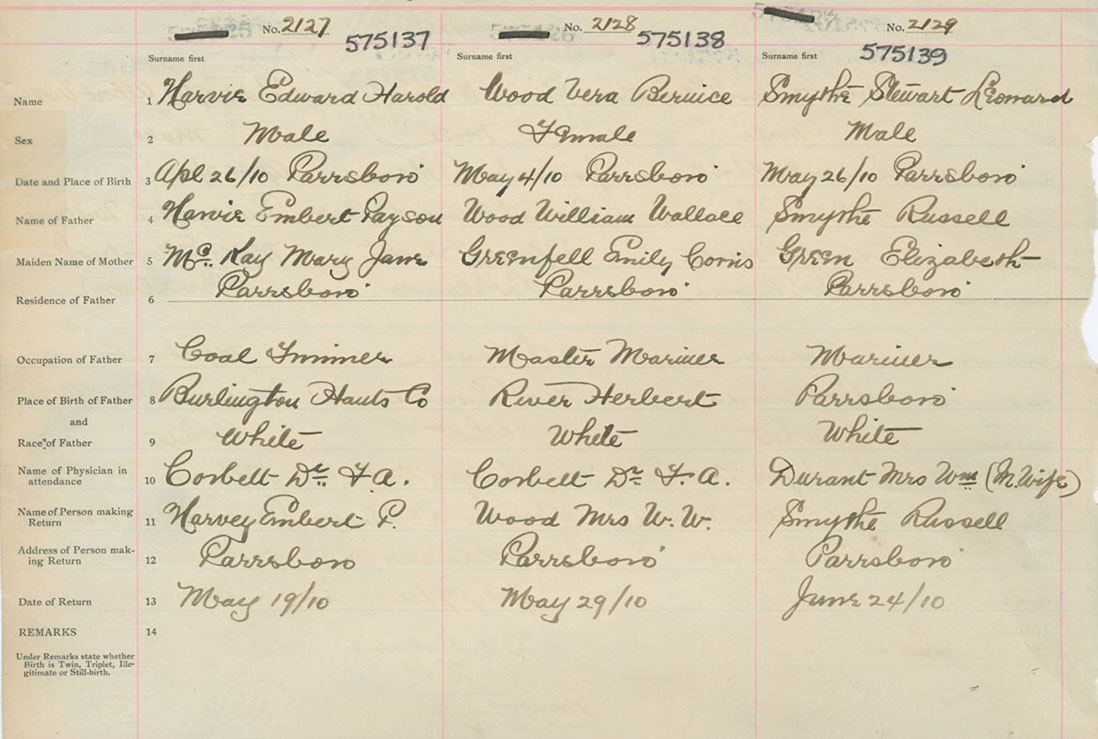 No. 2127 No. 2128 No. 2129
575137 575138 575139
Surname first Surname first Surname first
Name 1 Harvie Edward Harold Wood Vera Bernice Smythe Stewart Leonard
Sex 2 Male Female Male
Date and Place of Birth 3 Apl 26/10 Parrsboro' May 4/10 Parrsboro' May 26/10 Parrsboro'
Name of Father 4 Harvie Embert Payson Wood William Wallace Smythe Russell
Maiden Name of Mother 5 Mc. Kay Mary Jane Greenfell Emily Green Elizabeth
Residence of Father 6 Parrsboro' Parrsboro' Parrsboro'
Occupation of Father 7 Coal Trimmer Master Mariner Mariner
Place of Birth of Father 8 Burlington Hants Co River Herbert Parrsboro'
and
Race of Father 9 White White White
Name of Physician in
attendance 10 Corbett Dr. F. A. Corbett Dr. F. A. Durant Mrs Wm (M. Wife)
Name of Person making
Return 11 Harvey Embert P. Wood Mrs W. W. Smythe Russell
Address of Person mak-
ing Return 12 Parrsboro Parrsboro' Parrsboro'
Date of Return 13 May 19/10 May 29/10 June 24/10
REMARKS 14
Under Remarks state whether
Birth is Twin, Triplet, Ille-
gitimate or Still-birth.